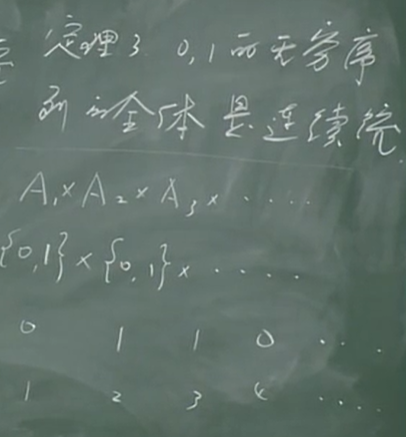 定理3 0,1的无穷序
列的全体是连续统
A₁×A₂×A₃×·····
{0,1}×{0,1}×·····
0 1 1 0 ····
1 2 3 4 ····